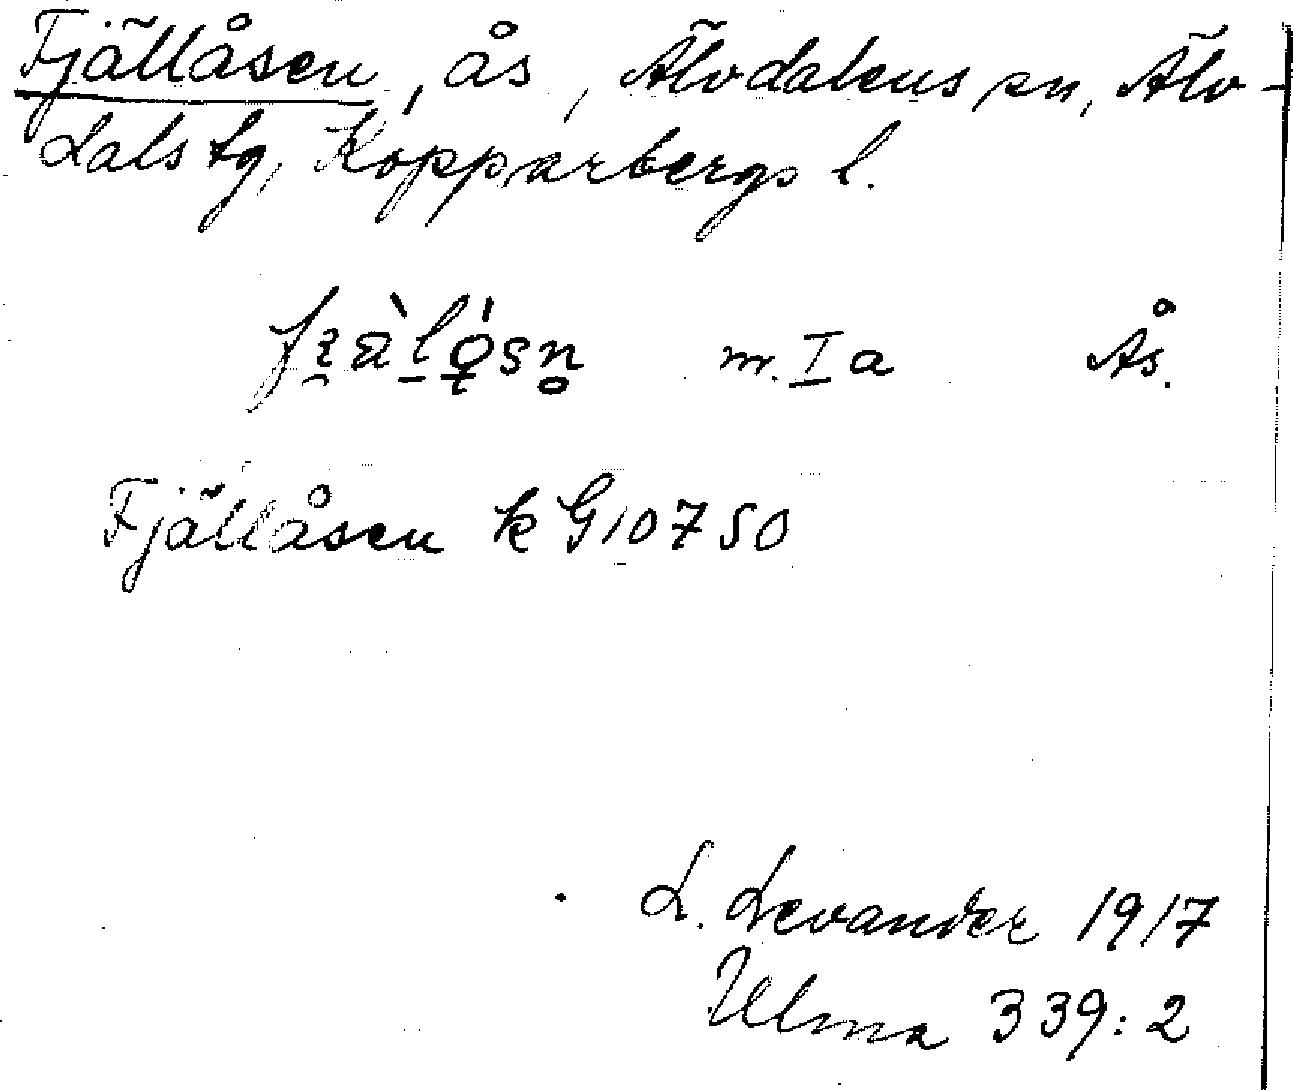 Fjällåsen, ås, Älvdalens sn, Älv-
dals tg, Kopparbergs l.
m. I a Ås.
Fjällåsen k G 10750
L. Levander 1917
Ulma 339:2